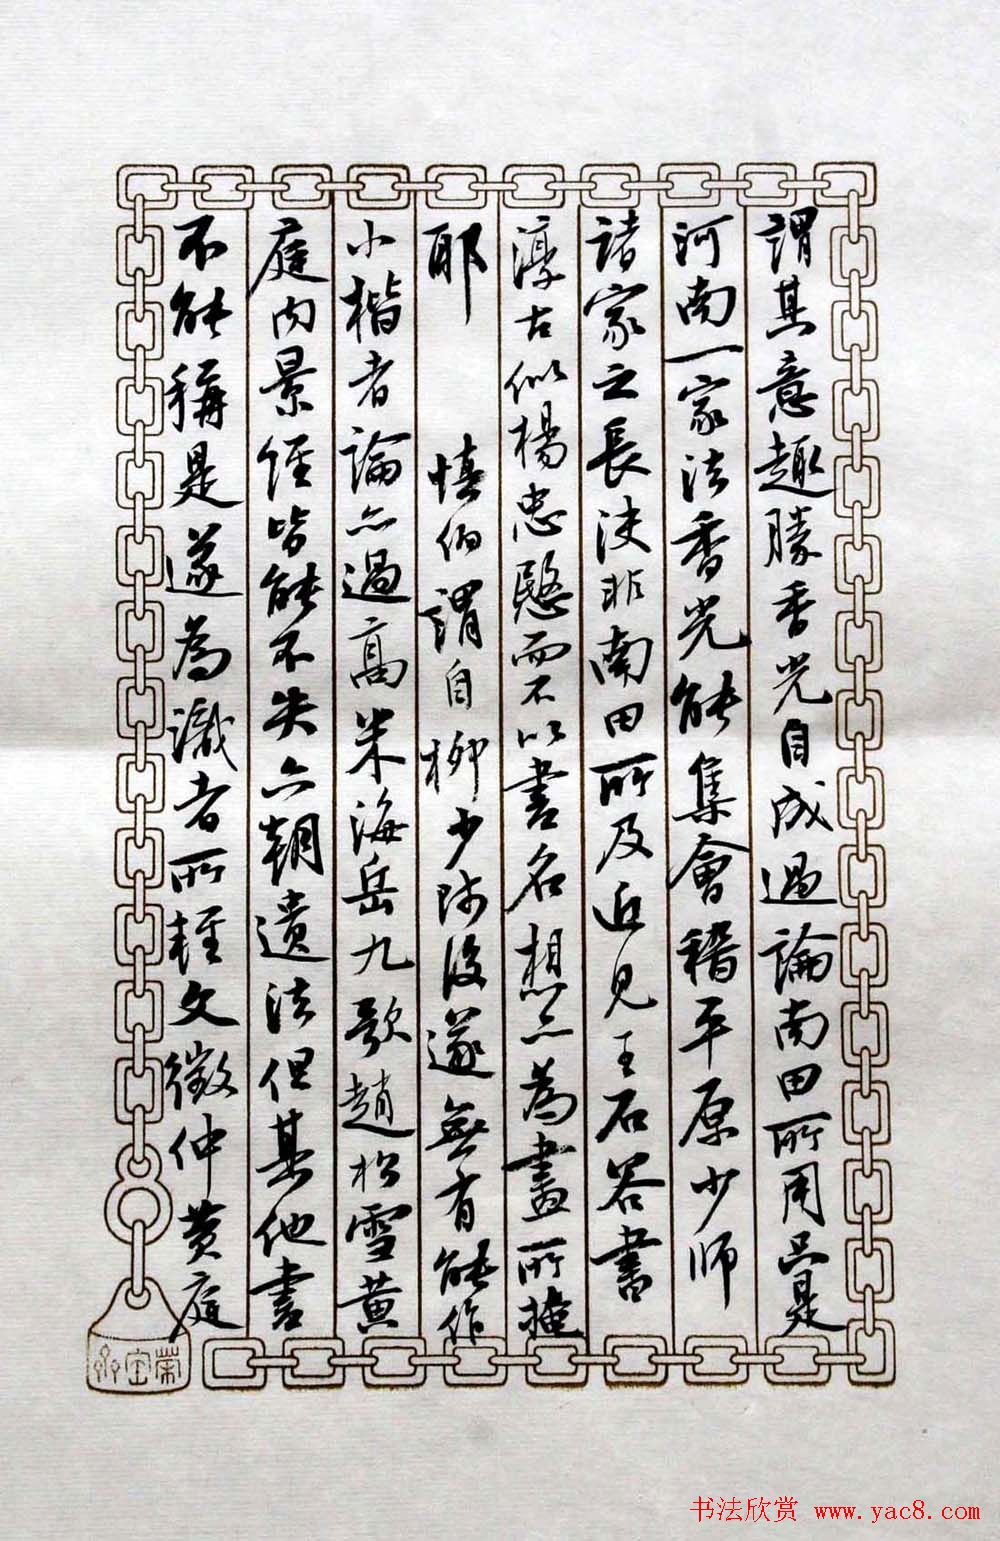 謂其意趣勝香光自成過論南田所用只是
河南一家法香光能集會稽平原少師
諸家之長決非南田所及近見王石谷書
淳古似楊忠愍而不以書名想亦為畫所掩
耶　慎伯謂自柳少師後遂無有能作
小楷者論亦過高米海岳九歌趙松雪黃
庭內景經皆能不失六朝遺法但其他書
不能稱是遂為識者所輕文徵仲黃庭
榮宝齋
书法欣赏 www.yac8.com